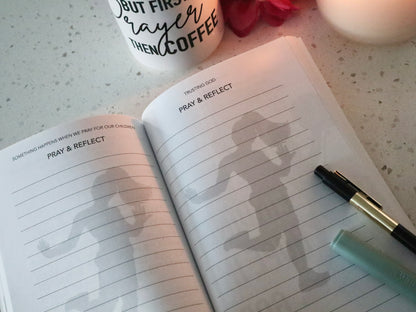 BUT FIRST
Prayer
THEN COFFEE
SOMETHING HAPPENS WHEN WE PRAY FOR OUR CHILDREN
PRAY & REFLECT
TRUSTING GOD
PRAY & REFLECT